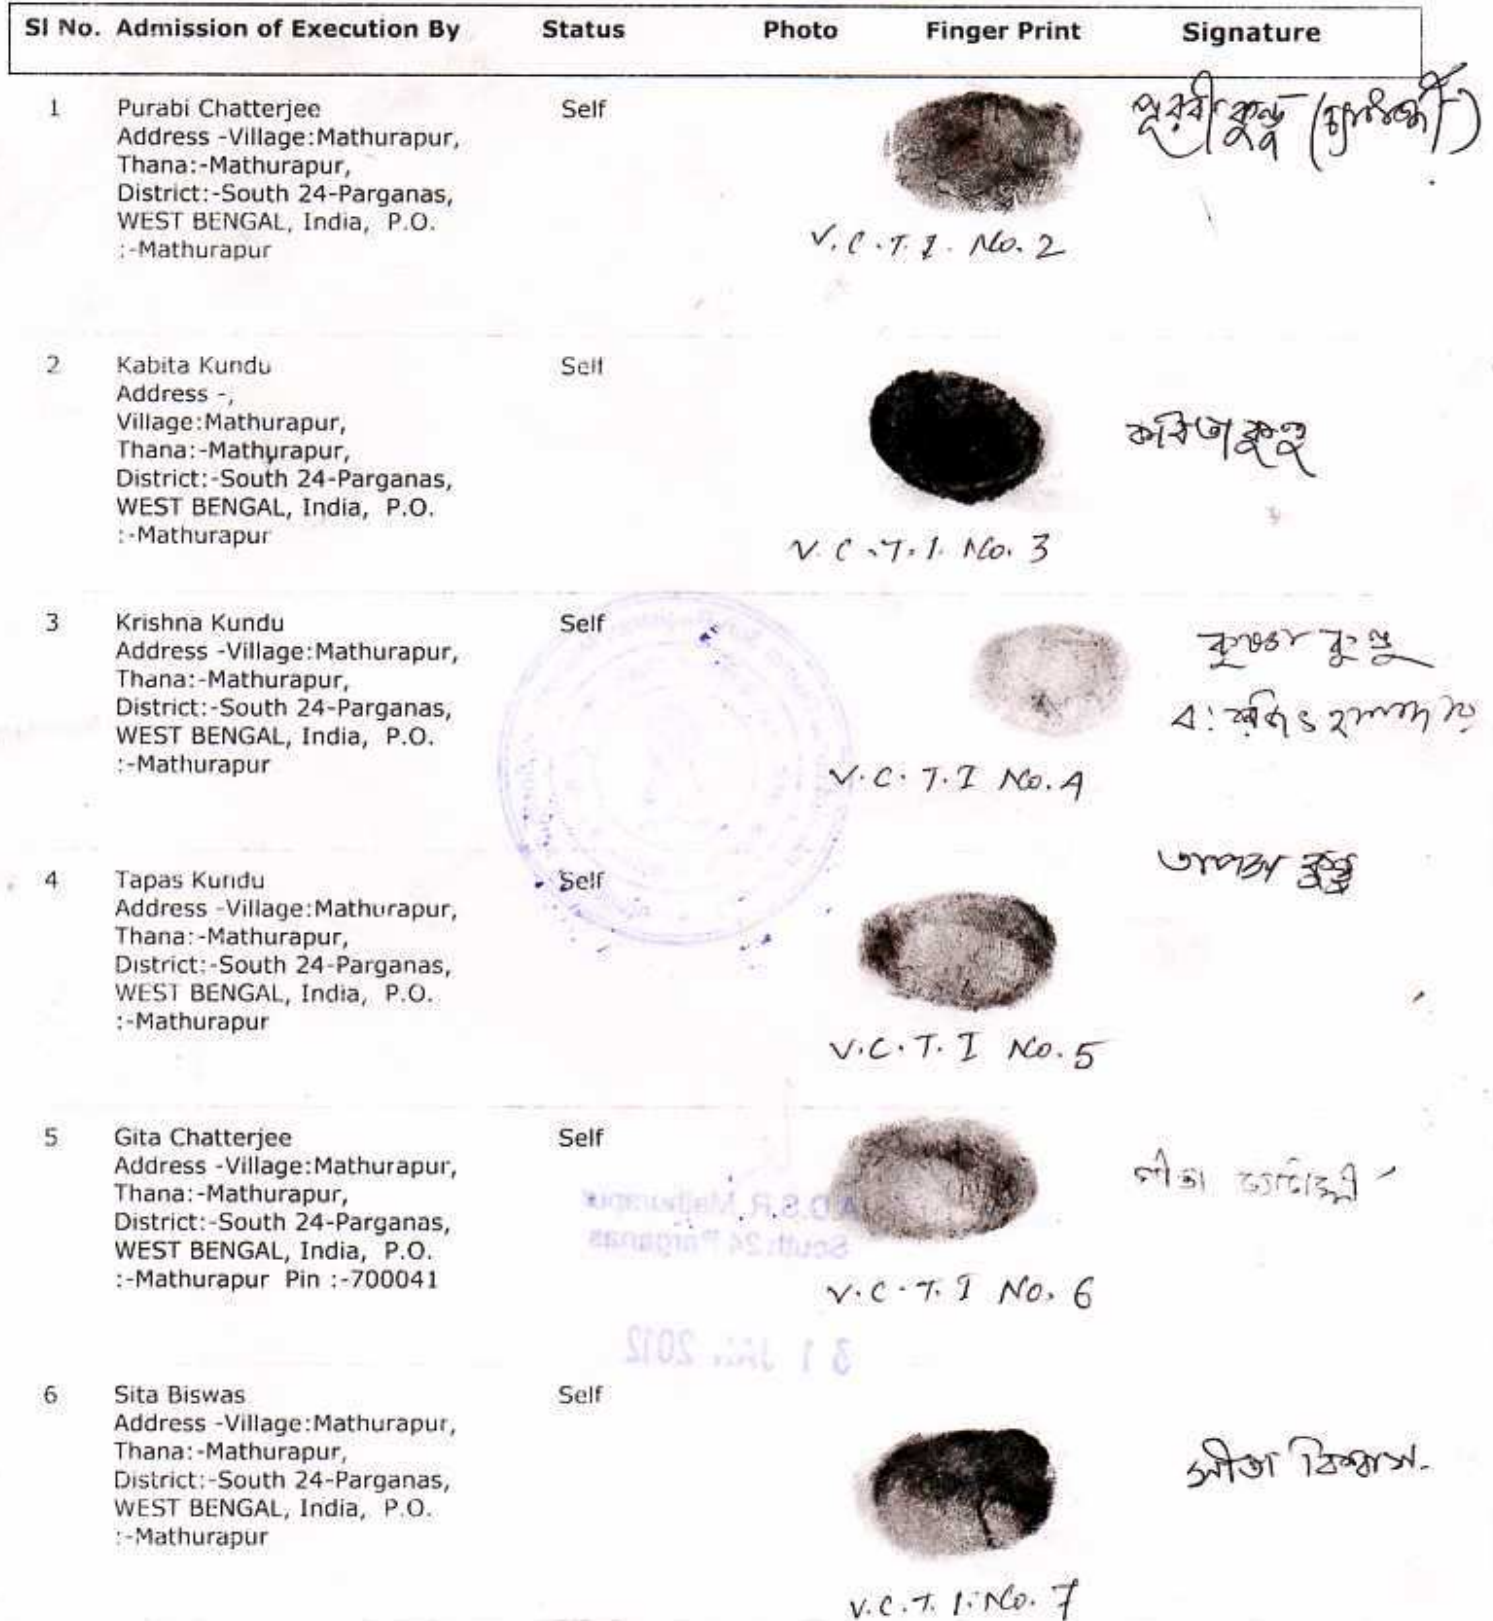 Sl No. Admission of Execution By Status Photo Finger Print Signature
1 Purabi Chatterjee Self পূরবী কুন্ডু (চ্যাটার্জী)
Address -Village:Mathurapur,
Thana:-Mathurapur,
District:-South 24-Parganas,
WEST BENGAL, India, P.O.
:-Mathurapur
V.C.T.I. No. 2
2 Kabita Kundu Self
Address -,
Village:Mathurapur,
Thana:-Mathurapur,
District:-South 24-Parganas,
WEST BENGAL, India, P.O.
:-Mathurapur
কবিতা কুন্ডু
V.C.T.I. No. 3
3 Krishna Kundu Self
Address -Village:Mathurapur,
Thana:-Mathurapur,
District:-South 24-Parganas,
WEST BENGAL, India, P.O.
:-Mathurapur
কৃষ্ণা কুন্ডু
V.C.T.I No. 4
4 Tapas Kundu Self তাপস কুন্ডু
Address -Village:Mathurapur,
Thana:-Mathurapur,
District:-South 24-Parganas,
WEST BENGAL, India, P.O.
:-Mathurapur
V.C.T.I No. 5
5 Gita Chatterjee Self
Address -Village:Mathurapur,
Thana:-Mathurapur,
District:-South 24-Parganas,
WEST BENGAL, India, P.O.
:-Mathurapur Pin :-700041
গীতা চ্যাটার্জ্জী
A.D.S.R. Mathurapur
South 24 Parganas
V.C.T.I No. 6
31 JAN 2012
6 Sita Biswas Self
Address -Village:Mathurapur,
Thana:-Mathurapur,
District:-South 24-Parganas,
WEST BENGAL, India, P.O.
:-Mathurapur
সীতা বিশ্বাস.
V.C.T.I. No. 7